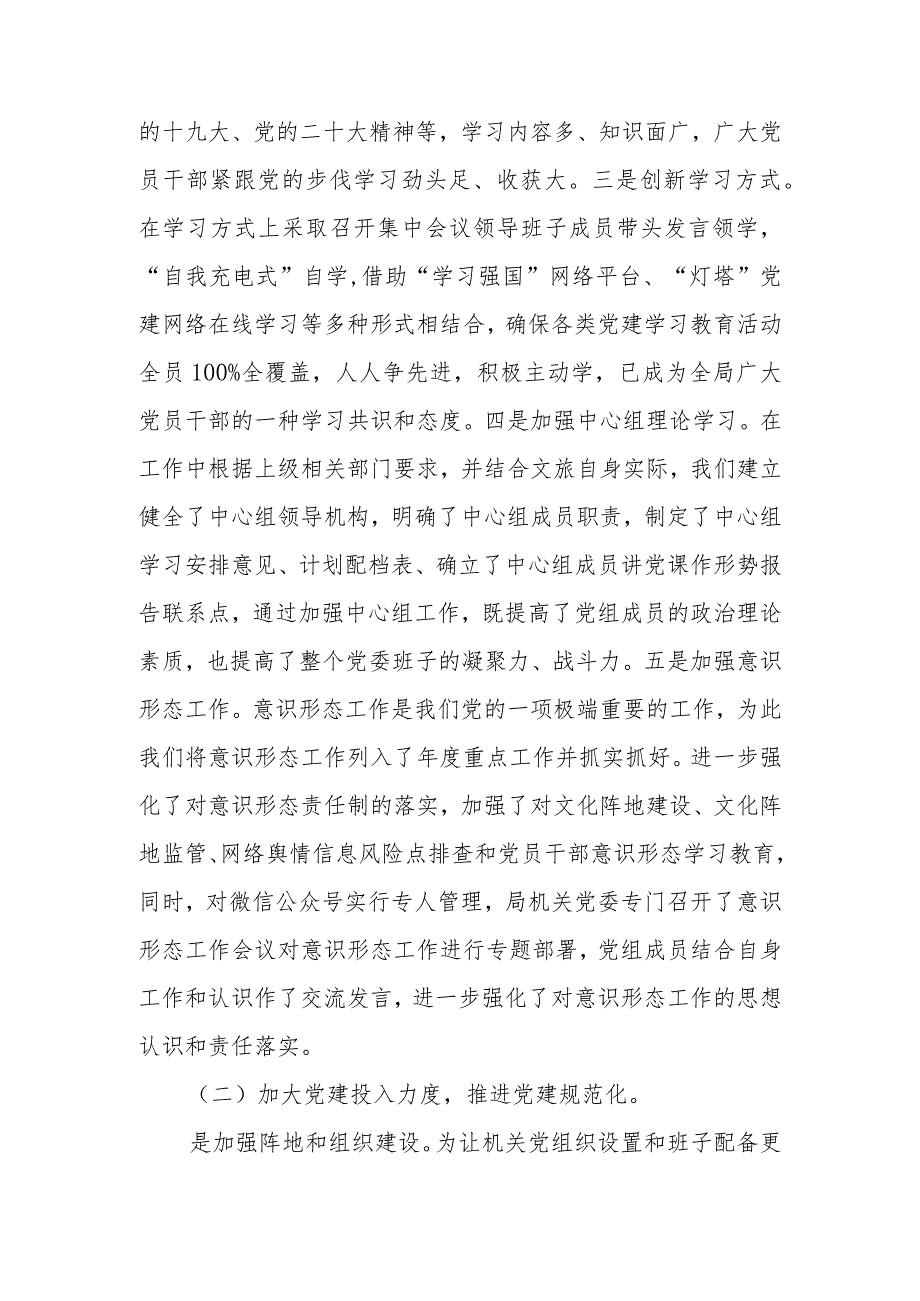 的十九大、党的二十大精神等，学习内容多、知识面广，广大党
员干部紧跟党的步伐学习劲头足、收获大。三是创新学习方式。
在学习方式上采取召开集中会议领导班子成员带头发言领学，
“自我充电式”自学,借助“学习强国”网络平台、“灯塔”党
建网络在线学习等多种形式相结合，确保各类党建学习教育活动
全员100%全覆盖，人人争先进，积极主动学，已成为全局广大
党员干部的一种学习共识和态度。四是加强中心组理论学习。在
工作中根据上级相关部门要求，并结合文旅自身实际，我们建立
健全了中心组领导机构，明确了中心组成员职责，制定了中心组
学习安排意见、计划配档表、确立了中心组成员讲党课作形势报
告联系点，通过加强中心组工作，既提高了党组成员的政治理论
素质，也提高了整个党委班子的凝聚力、战斗力。五是加强意识
形态工作。意识形态工作是我们党的一项极端重要的工作，为此
我们将意识形态工作列入了年度重点工作并抓实抓好。进一步强
化了对意识形态责任制的落实，加强了对文化阵地建设、文化阵
地监管、网络舆情信息风险点排查和党员干部意识形态学习教育，
同时，对微信公众号实行专人管理，局机关党委专门召开了意识
形态工作会议对意识形态工作进行专题部署，党组成员结合自身
工作和认识作了交流发言，进一步强化了对意识形态工作的思想
认识和责任落实。
（二）加大党建投入力度，推进党建规范化。
是加强阵地和组织建设。为让机关党组织设置和班子配备更